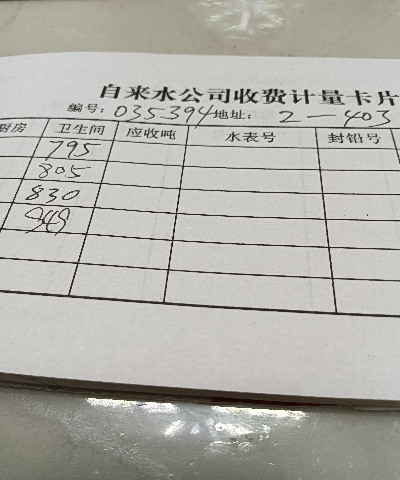 自来水公司收费计量卡片
编号: 035394 地址: 2-403
厨房 卫生间 应收吨 水表号 封铅号
795
805
830